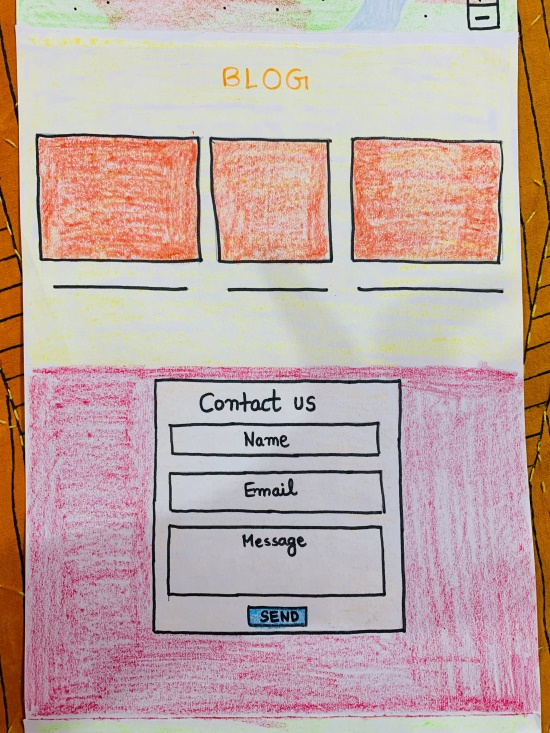 BLOG
Contact us
Name
Email
Message
SEND